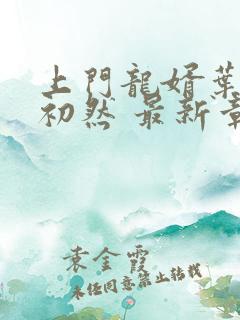 上門龍婿葉
初然 最新章
袁金霞
未经同意禁止转载